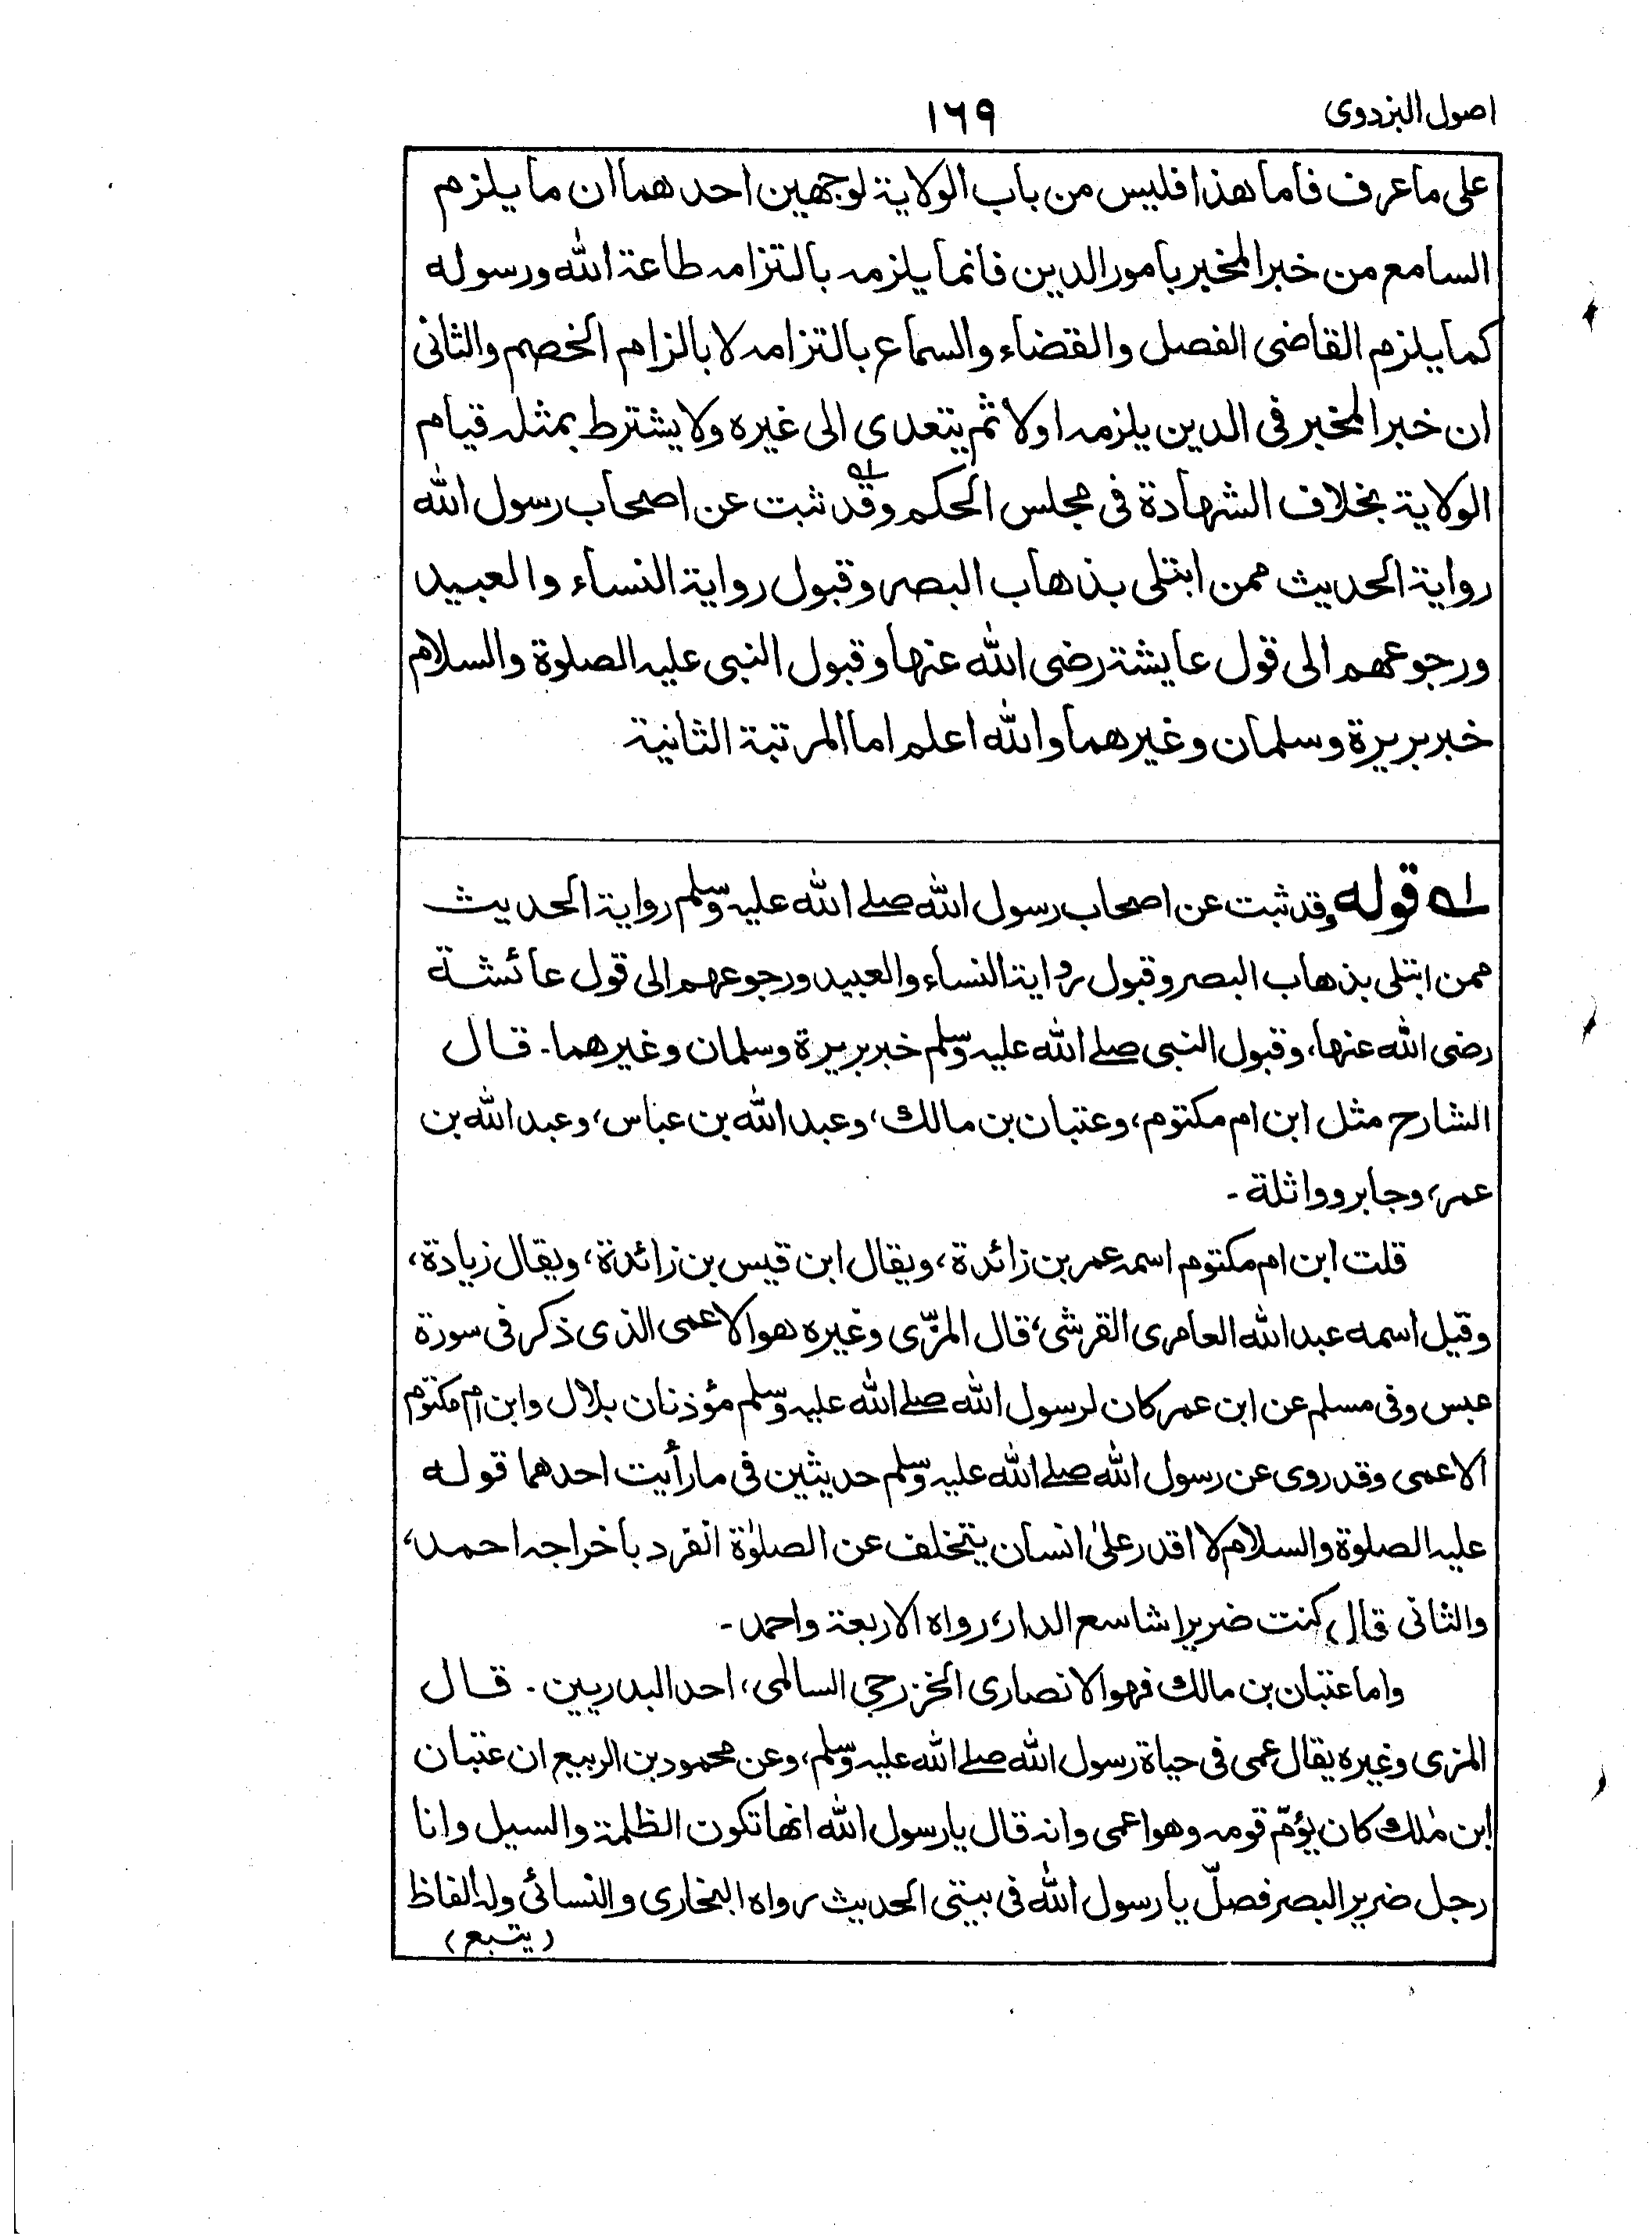 اصول البزدوی
۱۶۹
علی ما عرف فاما هذا فلیس من باب الولایة لوجهین احدهما ان ما یلزم
السامع من خبر المخبر بامور الدین فانما یلزمه بالتزامه طاعة الله ورسوله
کما یلزم القاضی الفصل والقضاء والسماع بالتزامه لا بالزام الخصم والثانی
ان خبر المخبر فی الدین یلزمه اولا ثم یتعدی الی غیره ولا یشترط بمثله قیام
الولایة بخلاف الشهادة فی مجلس الحکم وقد ثبت عن اصحاب رسول الله
روایة الحدیث ممن ابتلی بذهاب البصر وقبول روایة النساء والعبید
ورجوعهم الی قول عایشة رضی الله عنها وقبول النبی علیه الصلوة والسلام
خبر بریرة وسلمان وغیرهما والله اعلم اما المرتبة الثانیة
له قوله وقد ثبت عن اصحاب رسول الله صلے الله علیه وسلم روایة الحدیث
ممن ابتلی بذهاب البصر وقبول روایة النساء والعبید ورجوعهم الی قول عائشة
رضی الله عنها، وقبول النبی صلے الله علیه وسلم خبر بریرة وسلمان وغیرهما۔ قال
الشارح مثل ابن ام مکتوم، وعتبان بن مالك، وعبد الله بن عباس، وعبد الله بن
عمر، وجابر وواثلة۔
قلت ابن ام مکتوم اسمه عمر بن زائدة، ویقال ابن قیس بن زائدة، ویقال زیادة،
وقیل اسمه عبد الله العامری القرشی، قال المزّی وغیره هو الاعمی الذی ذکر فی سورة
عبس وفی مسلم عن ابن عمر کان لرسول الله صلے الله علیه وسلم مؤذنان بلال وابن ام مکتوم
الاعمی وقد روی عن رسول الله صلے الله علیه وسلم حدیثین فی ما رأیت احدهما قوله
علیه الصلوة والسلام لا اقدر علیٰ انسان یتخلف عن الصلوٰة انفرد باخراجه احمد،
والثانی قال کنت ضریرا شاسع الدار، رواه الاربعة واحمد۔
واما عتبان بن مالك فهو الانصاری الخزرجی السالمی، احد البدریین۔ قال
المزی وغیره یقال عمی فی حیاة رسول الله صلے الله علیه وسلم، وعن محمود بن الربیع ان عتبان
ابن مٰلك کان یؤمّ قومه وهو اعمی وانه قال یا رسول الله انها تکون الظلمة والسیل وانا
رجل ضریر البصر فصلّ یا رسول الله فی بیتی الحدیث رواه البخاری والنسائی وله الفاظ
(یتبع)